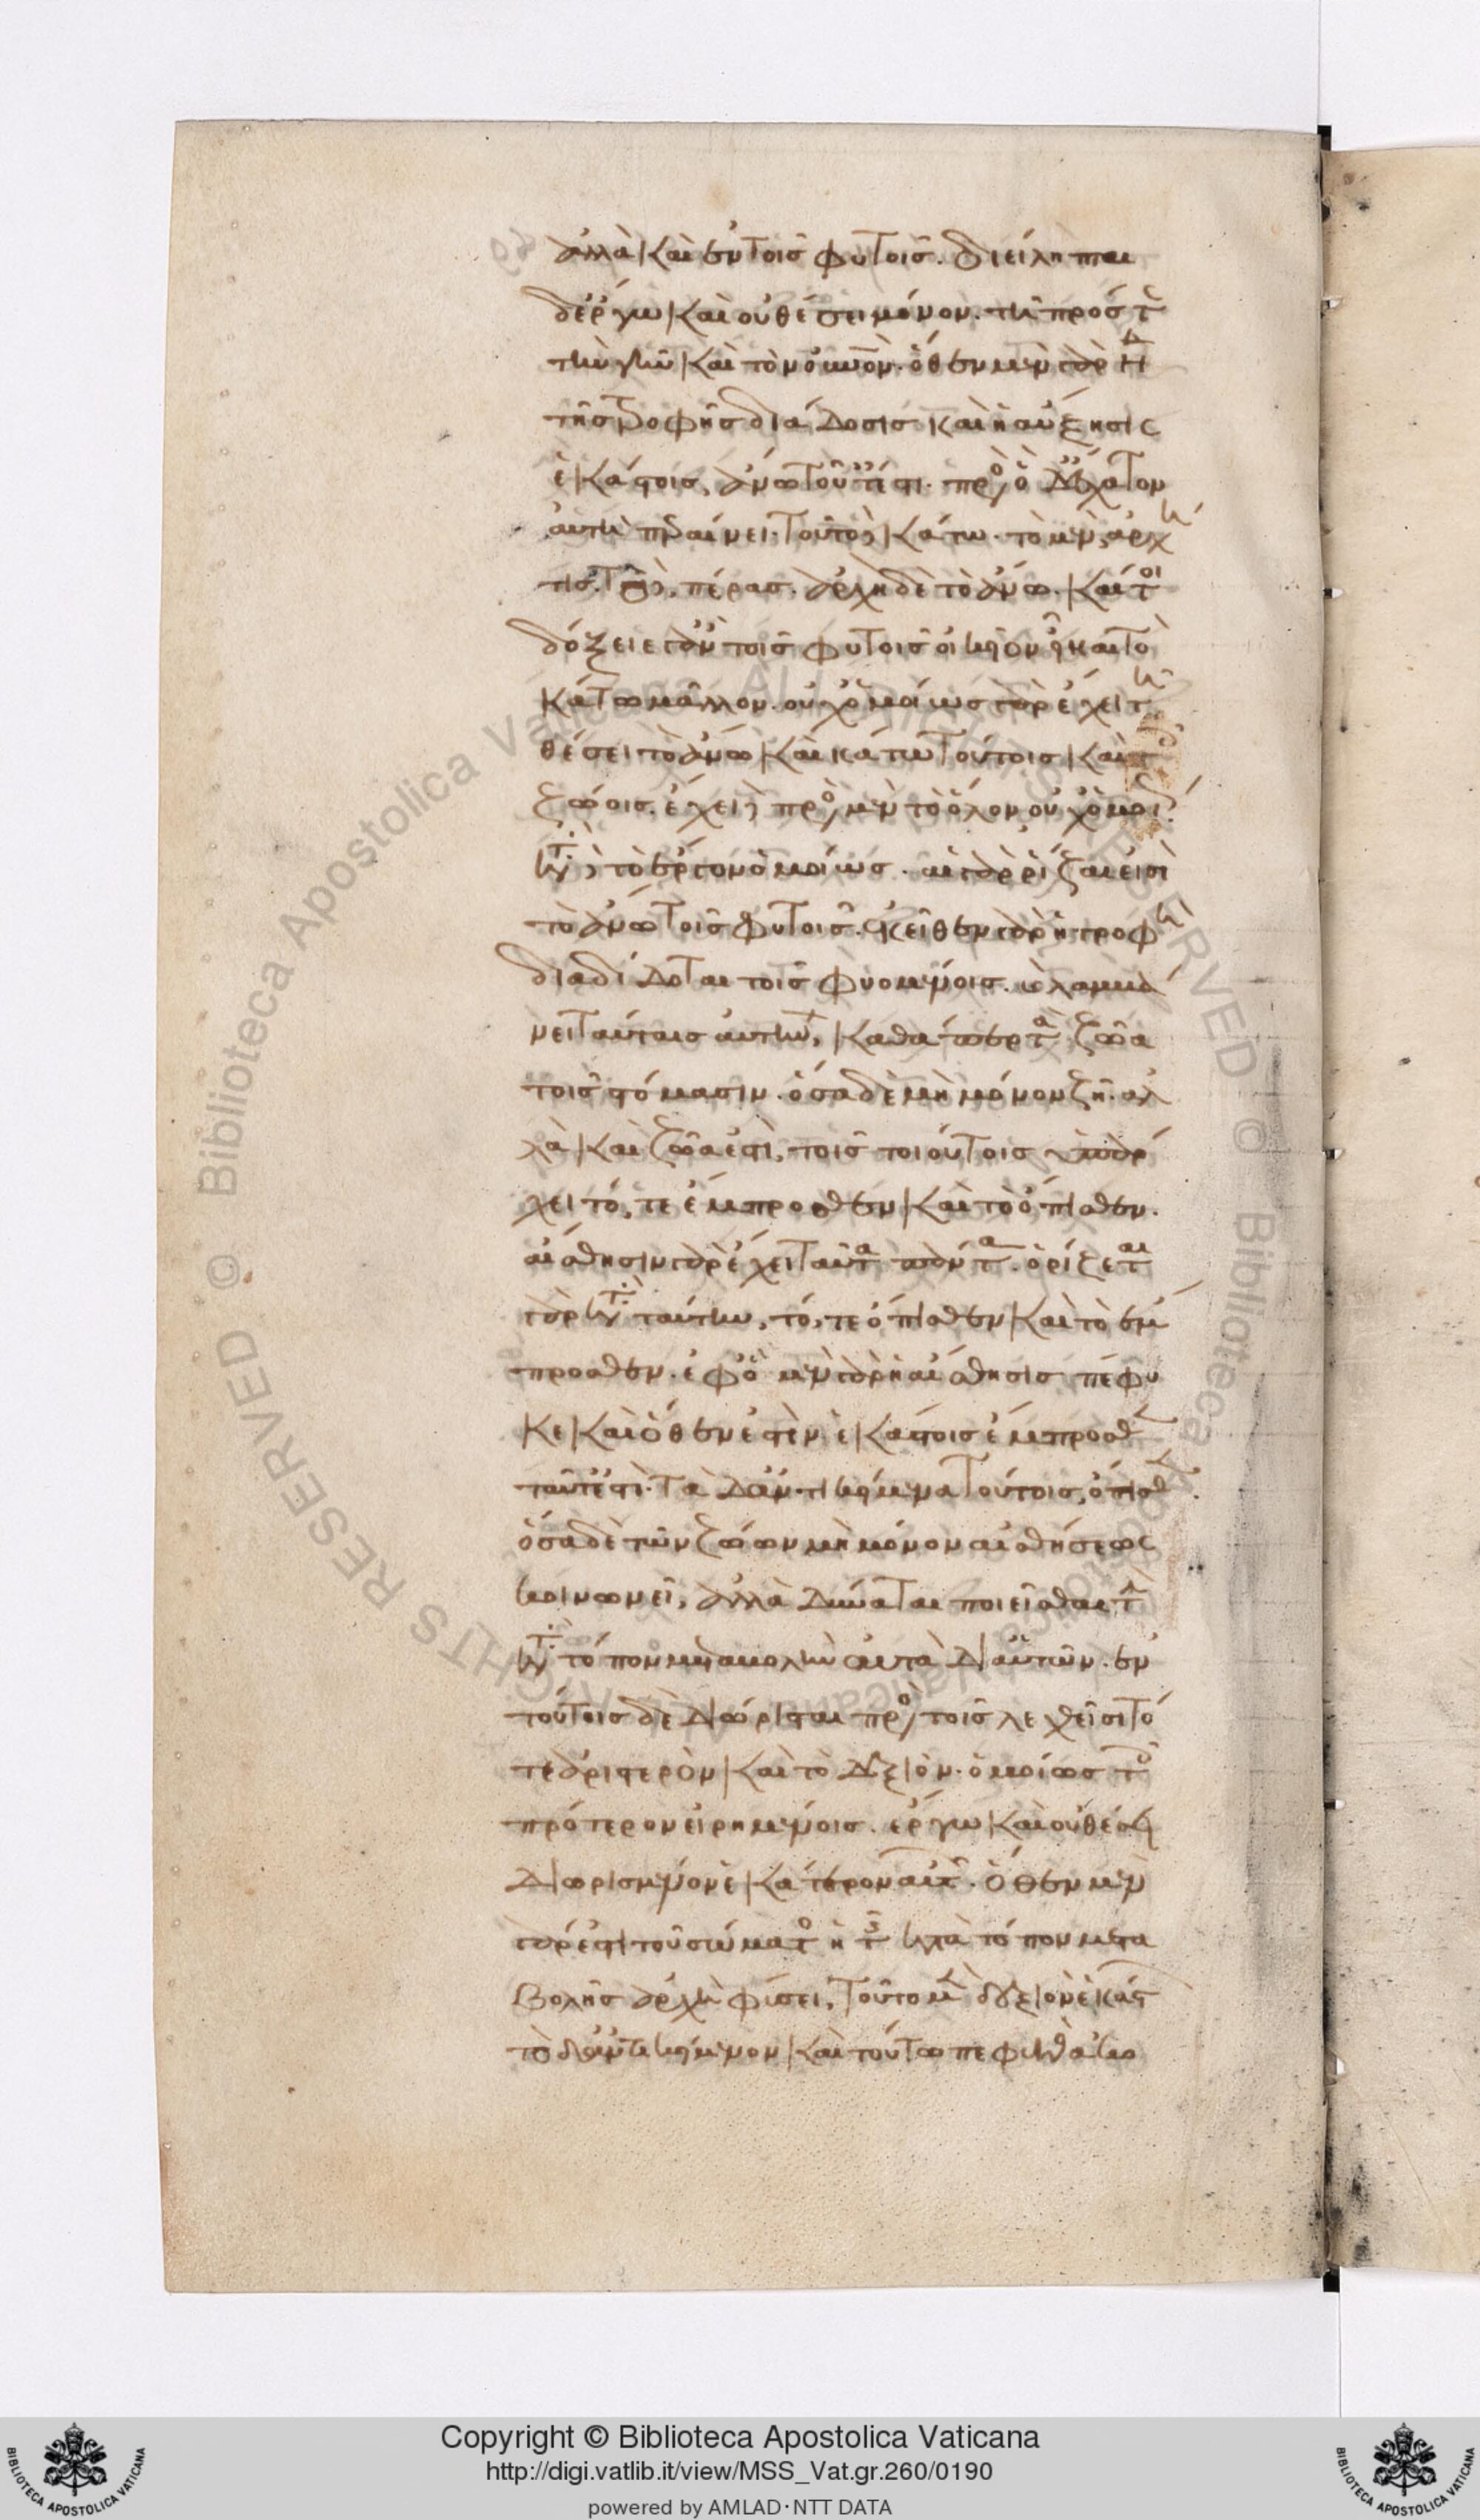 ἀλλὰ καὶ ἐν τοῖς φυτοῖς. διείληπται
δ' ἔργω καὶ οὐ θέσει μόνον. τῆ πρός τε
τὴν γῆν καὶ τὸν οὐνόν. ὅθεν μὲν γὰρ ἡ
τῆς τροφῆς διάδοσις καὶ ἡ αὔξησις
ἑκάστοις, ἄνω τοῦτ' ἐστι. πρὸς ὃ δ' ἔσχατον
αὕτη περαίνει. τοῦτο κάτω. τὸ μὲν ἀρχή
τις. τὸ δὲ, πέρας. ἀρχὴ δὲ τὸ ἄνω. καίτοι
δόξειεν ἂν τοῖς φυτοῖς οἰκεῖον εἶναι τὸ
κάτω μᾶλλον. οὐχ ὁμοίως γὰρ ἔχει τῆ
θέσει τὸ ἄνω καὶ κάτω τούτοις καὶ τοῖς
ζώοις. ἔχει δὲ πρὸς μὲν τὸ ὅλον οὐχ ὁμοί
κατὰ δὲ τὸ ἔργον ὁμοίως. αἱ γὰρ ῥίζαι εἰσὶ
τὸ ἄνω τοῖς φυτοῖς. ἐκεῖθεν γὰρ ἡ τροφὴ
διαδίδοται τοῖς φυομένοις. καὶ λαμβά
νει ταύταις αὐτὴν, καθάπερ τὰ ζῶα
τοῖς στόμασιν. ὅσα δὲ μὴ μόνον ζῆ. ἀλ
λὰ καὶ ζῶα ἐστὶ, τοῖς τοιούτοις ὑπάρ
χει τό, τε ἔμπροσθεν καὶ τὸ ὄπισθεν.
αἴσθησιν γὰρ ἔχει ταῦτα πάντα. ὁρίζεται
γὰρ κατὰ ταύτην, τό, τε ὄπισθεν καὶ τὸ ἔμ
προσθεν. ἐφ' ὃ μὲν γὰρ ἡ αἴσθησις πέφυ
κε καὶ ὅθεν ἐστὶν ἑκάστοις ἔμπροσθεν
ταῦτ' ἐστι. τὰ δ' ἀντικείμενα τούτοις, ὄπισθεν.
ὅσα δὲ τῶν ζώων μὴ μόνον αἰσθήσεως
κοινωνεῖ, ἀλλὰ δύναται ποιεῖσθαι τὴν
κατὰ τόπον μεταβολὴν αὐτὰ δι' αὑτῶν. ἐν
τούτοις δὲ διώρισται πρὸς τοῖς λεχθεῖσι τό
τε ἀριστερὸν καὶ τὸ δεξιόν. ὁμοίως τοῖς
πρότερον εἰρημένοις. ἔργω καὶ οὐ θέσει
διωρισμένον ἑκάτερον αὐτῶν. ὅθεν μὲν
γάρ ἐστι τοῦ σώματος ἡ τῆς κατὰ τόπον μετα
βολῆς ἀρχὴ φύσει, τοῦτο μὲν δεξιὸν ἑκάστ
τὸ δ' ἀντικείμενον καὶ τούτω πεφυκὸς ἀκο